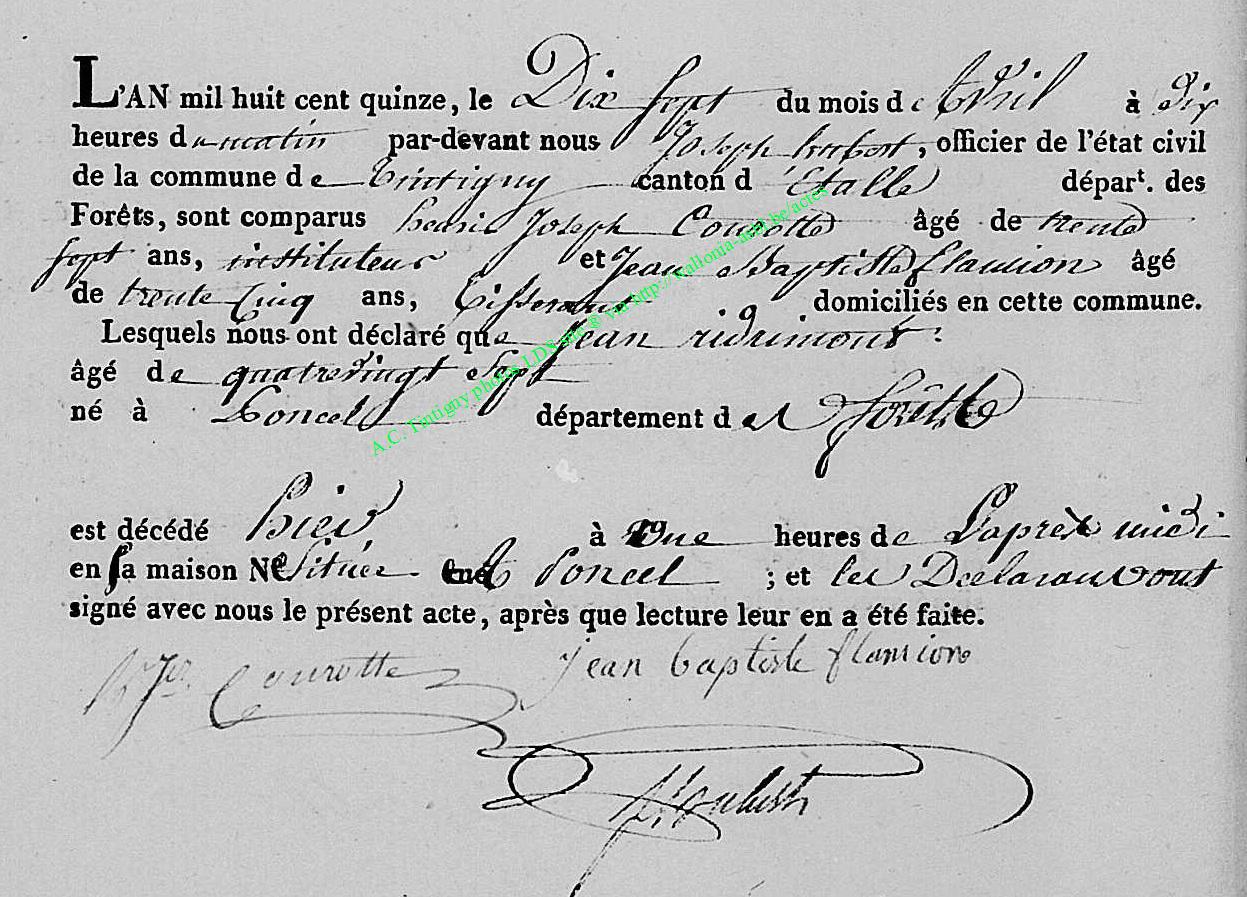 L'AN mil huit cent quinze, le Dix sept du mois de Avril à Dix
heures du matin par-devant nous Joseph hubert, officier de l'état civil
de la commune de Tintigny canton d'Etalle départ. des
Forêts, sont comparus henri Joseph Courotte âgé de trente
sept ans, instituteur et Jean Baptiste flamion âgé
de trente Cinq ans, Tisserant domiciliés en cette commune.
Lesquels nous ont déclaré que Jean ridrimont
âgé de quatrevingt Sept
né à Poncel département des forêts
est décédé hier à une heures de L'après midi
en sa maison N° Située Poncel ; et les Declarans ont
signé avec nous le présent acte, après que lecture leur en a été faite.
Courotte jean baptiste flamion
A.C. Tintigny photos LDS via http://wallonia-asbl.be/actes